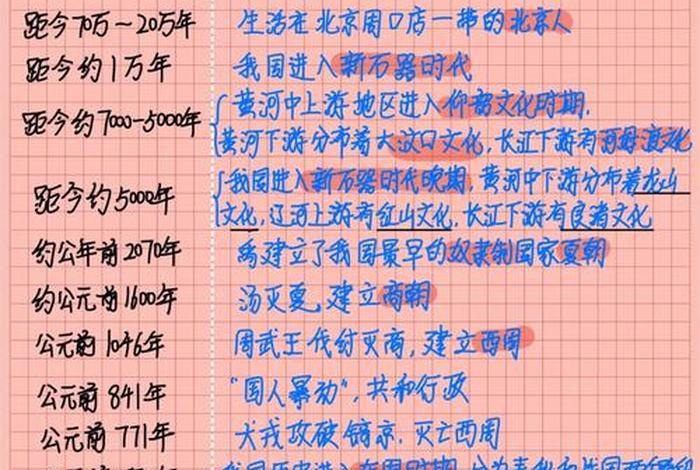 距今70万~20万年 生活在北京周口店一带的北京人
距今约1万年 我国进入新石器时代
距今约7000-5000年 黄河中上游地区进入仰韶文化时期,
黄河下游分布着大汶口文化,长江下游有河母渡文化
距今约5000年 我国进入新石器时代晚期,黄河中下游分布着龙山
文化,辽河上游有红山文化,长江下游有良渚文化
约公年前2070年 禹建立了我国最早的奴隶制国家夏朝
约公元前1600年 汤灭夏,建立商朝
公元前1046年 周武王伐纣灭商,建立西周
公元前841年 “国人暴动”,共和行政
公元前771年 犬戎攻破镐京,灭亡西周
我国历史进入东周时期,